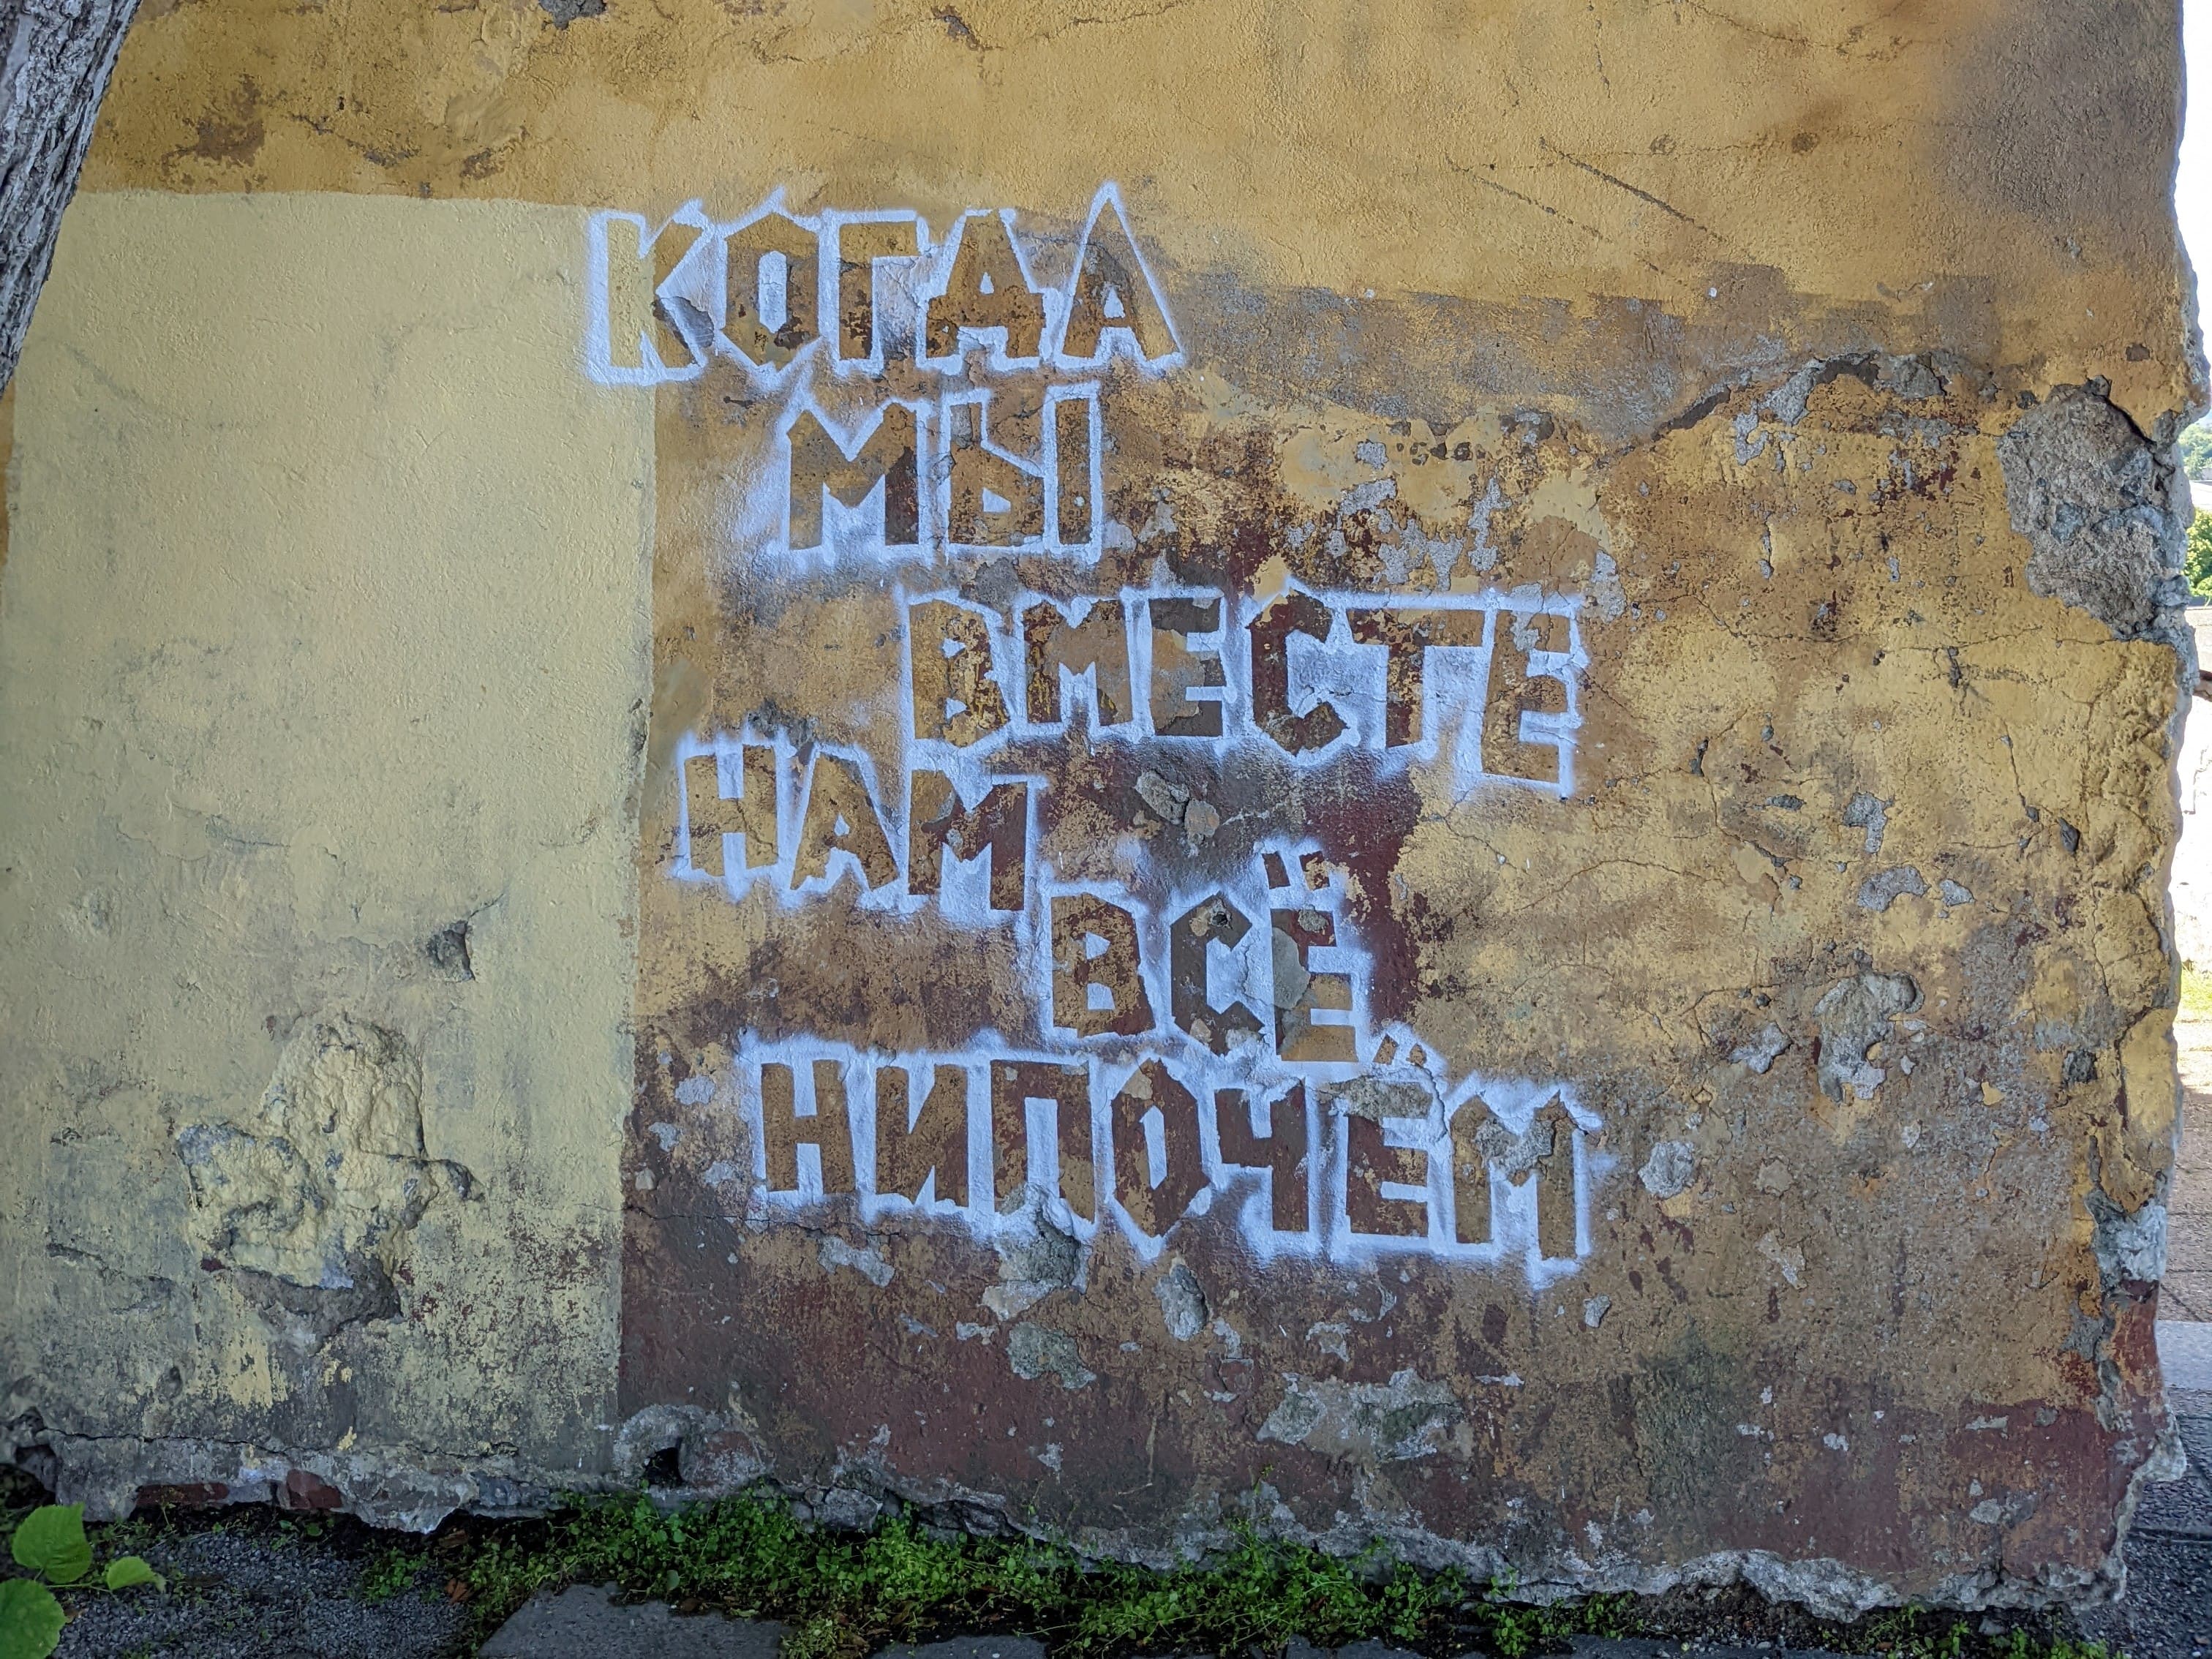 КОГДА
МЫ
ВМЕСТЕ
НАМ
ВСЁ
НИПОЧЁМ